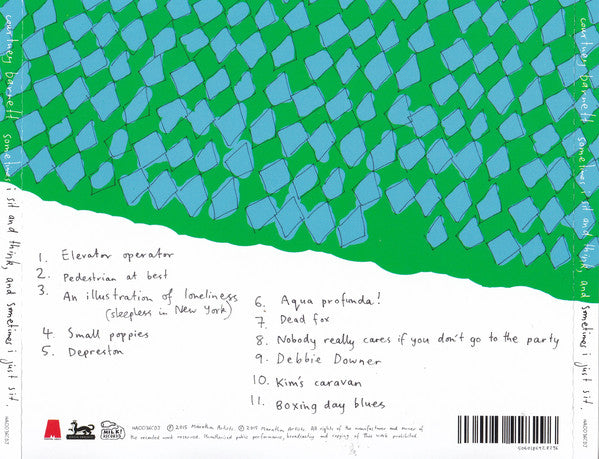 courtney barnett sometimes i sit and think, and sometimes i just sit.
1. Elevator operator
2. Pedestrian at best
3. An illustration of loneliness
(sleepless in New York)
4. Small poppies
5. Depreston
6. Aqua profunda!
7. Dead fox
8. Nobody really cares if you don't go to the party
9. Debbie Downer
10. Kim's caravan
11. Boxing day blues
MILK!
RECORDS
℗ 2015 Marathon Artists. © 2015 Marathon Artists. All rights of the manufacturer and owner of
the recorded work reserved. Unauthorised public performance, broadcasting and copying of this
courtney barnett sometimes i sit and think, and sometimes i just sit.